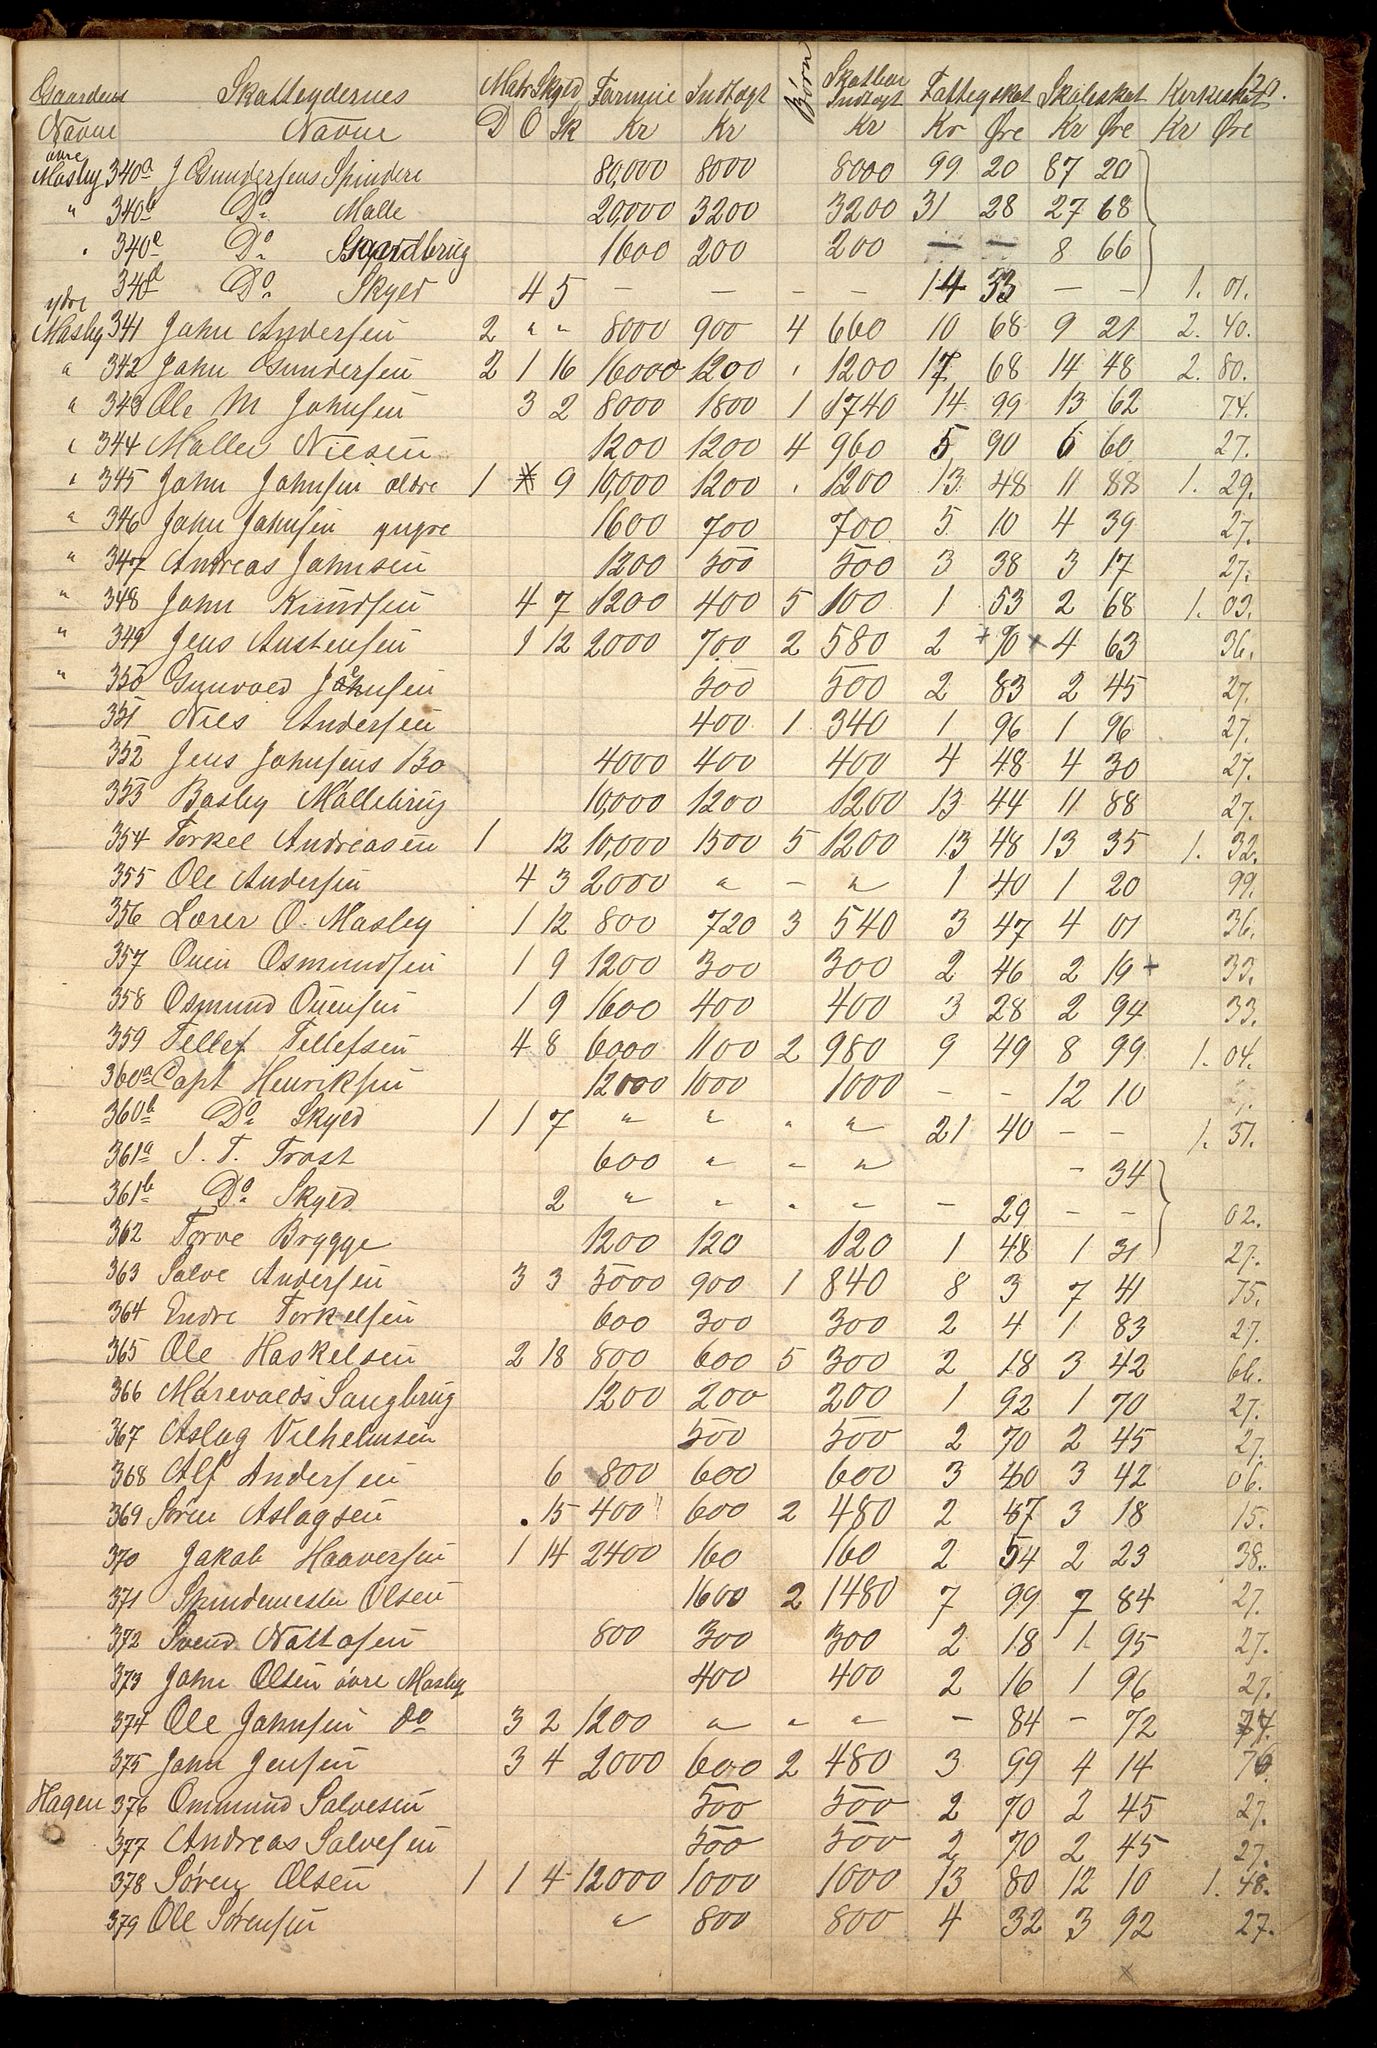 120.
Gaardens Skatteydernes Matr Skyld Formue Indtægt Børn Skatbar Indtægt Fattigskat Skoleskat Kirkeskat
Navne Navne D O Sk Kr Kr Kr Kr Øre Kr Øre Kr Øre
øvre
Mosby 340a J Gundersens Spinderi 80,000 8000 8000 99 20 87 20
" 340b Do Mølle 20,000 3200 3200 31 28 27 68
" 340c Do Gaardbrug 1600 200 200 — — 8 66
340d Do Skyld 4 5 — — — — 14 53 — — 1. 01.
ydre
Mosby 341 John Andersen 2 " " 8000 900 4 660 10 68 9 21 2. 40.
" 342 John Gundersen 2 1 16 16000 1200 " 1200 17 68 14 48 2. 80.
" 343 Ole M Johnsen 3 2 8000 1800 1 1740 14 99 13 62 74.
" 344 Møller Nilsen 1200 1200 4 960 5 90 6 60 27.
" 345 John Johnsen ældre 1 9 10,000 1200 " 1200 13 48 11 88 1. 29.
" 346 John Johnsen yngre 1600 700 700 5 10 4 39 27.
" 347 Andreas Johnsen 1200 500 500 3 38 3 17 27.
" 348 John Knudsen 4 7 1200 400 5 100 1 53 2 68 1. 03.
" 349 Jens Austensen 1 12 2000 700 2 580 2 + 70 + 4 63 36.
" 350 Gunvald Johnsen 500 500 2 83 2 45 27.
351 Nils Andersen 400 1 340 1 96 1 96 27.
352 Jens Johnsens Bo 4000 400 400 4 48 4 30 27.
353 Mosby Møllebrug 10,000 1200 1200 13 44 11 88 27.
354 Torkel Andreasen 1 12 10,000 1500 5 1200 13 48 13 35 1. 32.
355 Ole Andersen 4 3 2000 " — " 1 40 1 20 99.
356 Lærer O. Mosby 1 12 800 720 3 540 3 47 4 01 36.
357 Ouen Osmundsen 1 9 1200 300 300 2 46 2 19 + 33.
358 Osmund Ouensen 1 9 1600 400 400 3 28 2 94 33.
359 Tellef Tellefsen 4 8 6000 1100 2 980 9 49 8 99 1. 04.
360a Capt Henriksen 12000 1000 1000 — — 12 10
360b Do Skyld 1 1 7 " " " " 21 40 — — 1. 51.
361a S. T. Trost 600 " — " — 34
361b Do Skyld 2 " " " — — 29 — — 02.
362 Torve Brygge 1200 120 120 1 48 1 31 27.
363 Salve Andersen 3 3 5000 900 1 840 8 3 7 41 75.
364 Endre Torkelsen 600 300 300 2 4 1 83 27.
365 Ole Haskelsen 2 18 800 600 5 300 2 18 3 42 66.
366 Marevolds Saugbrug 1200 200 200 1 92 1 70 27.
367 Aslag Vilhelmsen 500 500 2 70 2 45 27.
368 Alf Andersen 6 800 600 600 3 40 3 42 06.
369 Søren Aslagsen 15 400 600 2 480 2 87 3 18 15.
370 Jakob Haaversen 1 14 2400 160 160 2 54 2 23 38.
371 Spindemester Olsen 1600 2 1480 7 99 7 84 27.
372 Svend 800 300 300 2 18 1 95 27.
373 John Olsen øvre Mosby 400 400 2 16 1 96 27.
374 Ole Johnsen do 3 2 1200 " " " — 84 — 72 74.
375 John Jensen 3 4 2000 600 2 480 3 99 4 14 76.
Hagen 376 Ommund Salvesen 500 500 2 70 2 45 27.
377 Andreas Salvesen 500 500 2 70 2 45 27.
378 Søren Olsen 1 1 4 12000 1000 1000 13 80 12 10 1. 48.
379 Ole Sørensen " 800 800 4 32 3 92 27.
x